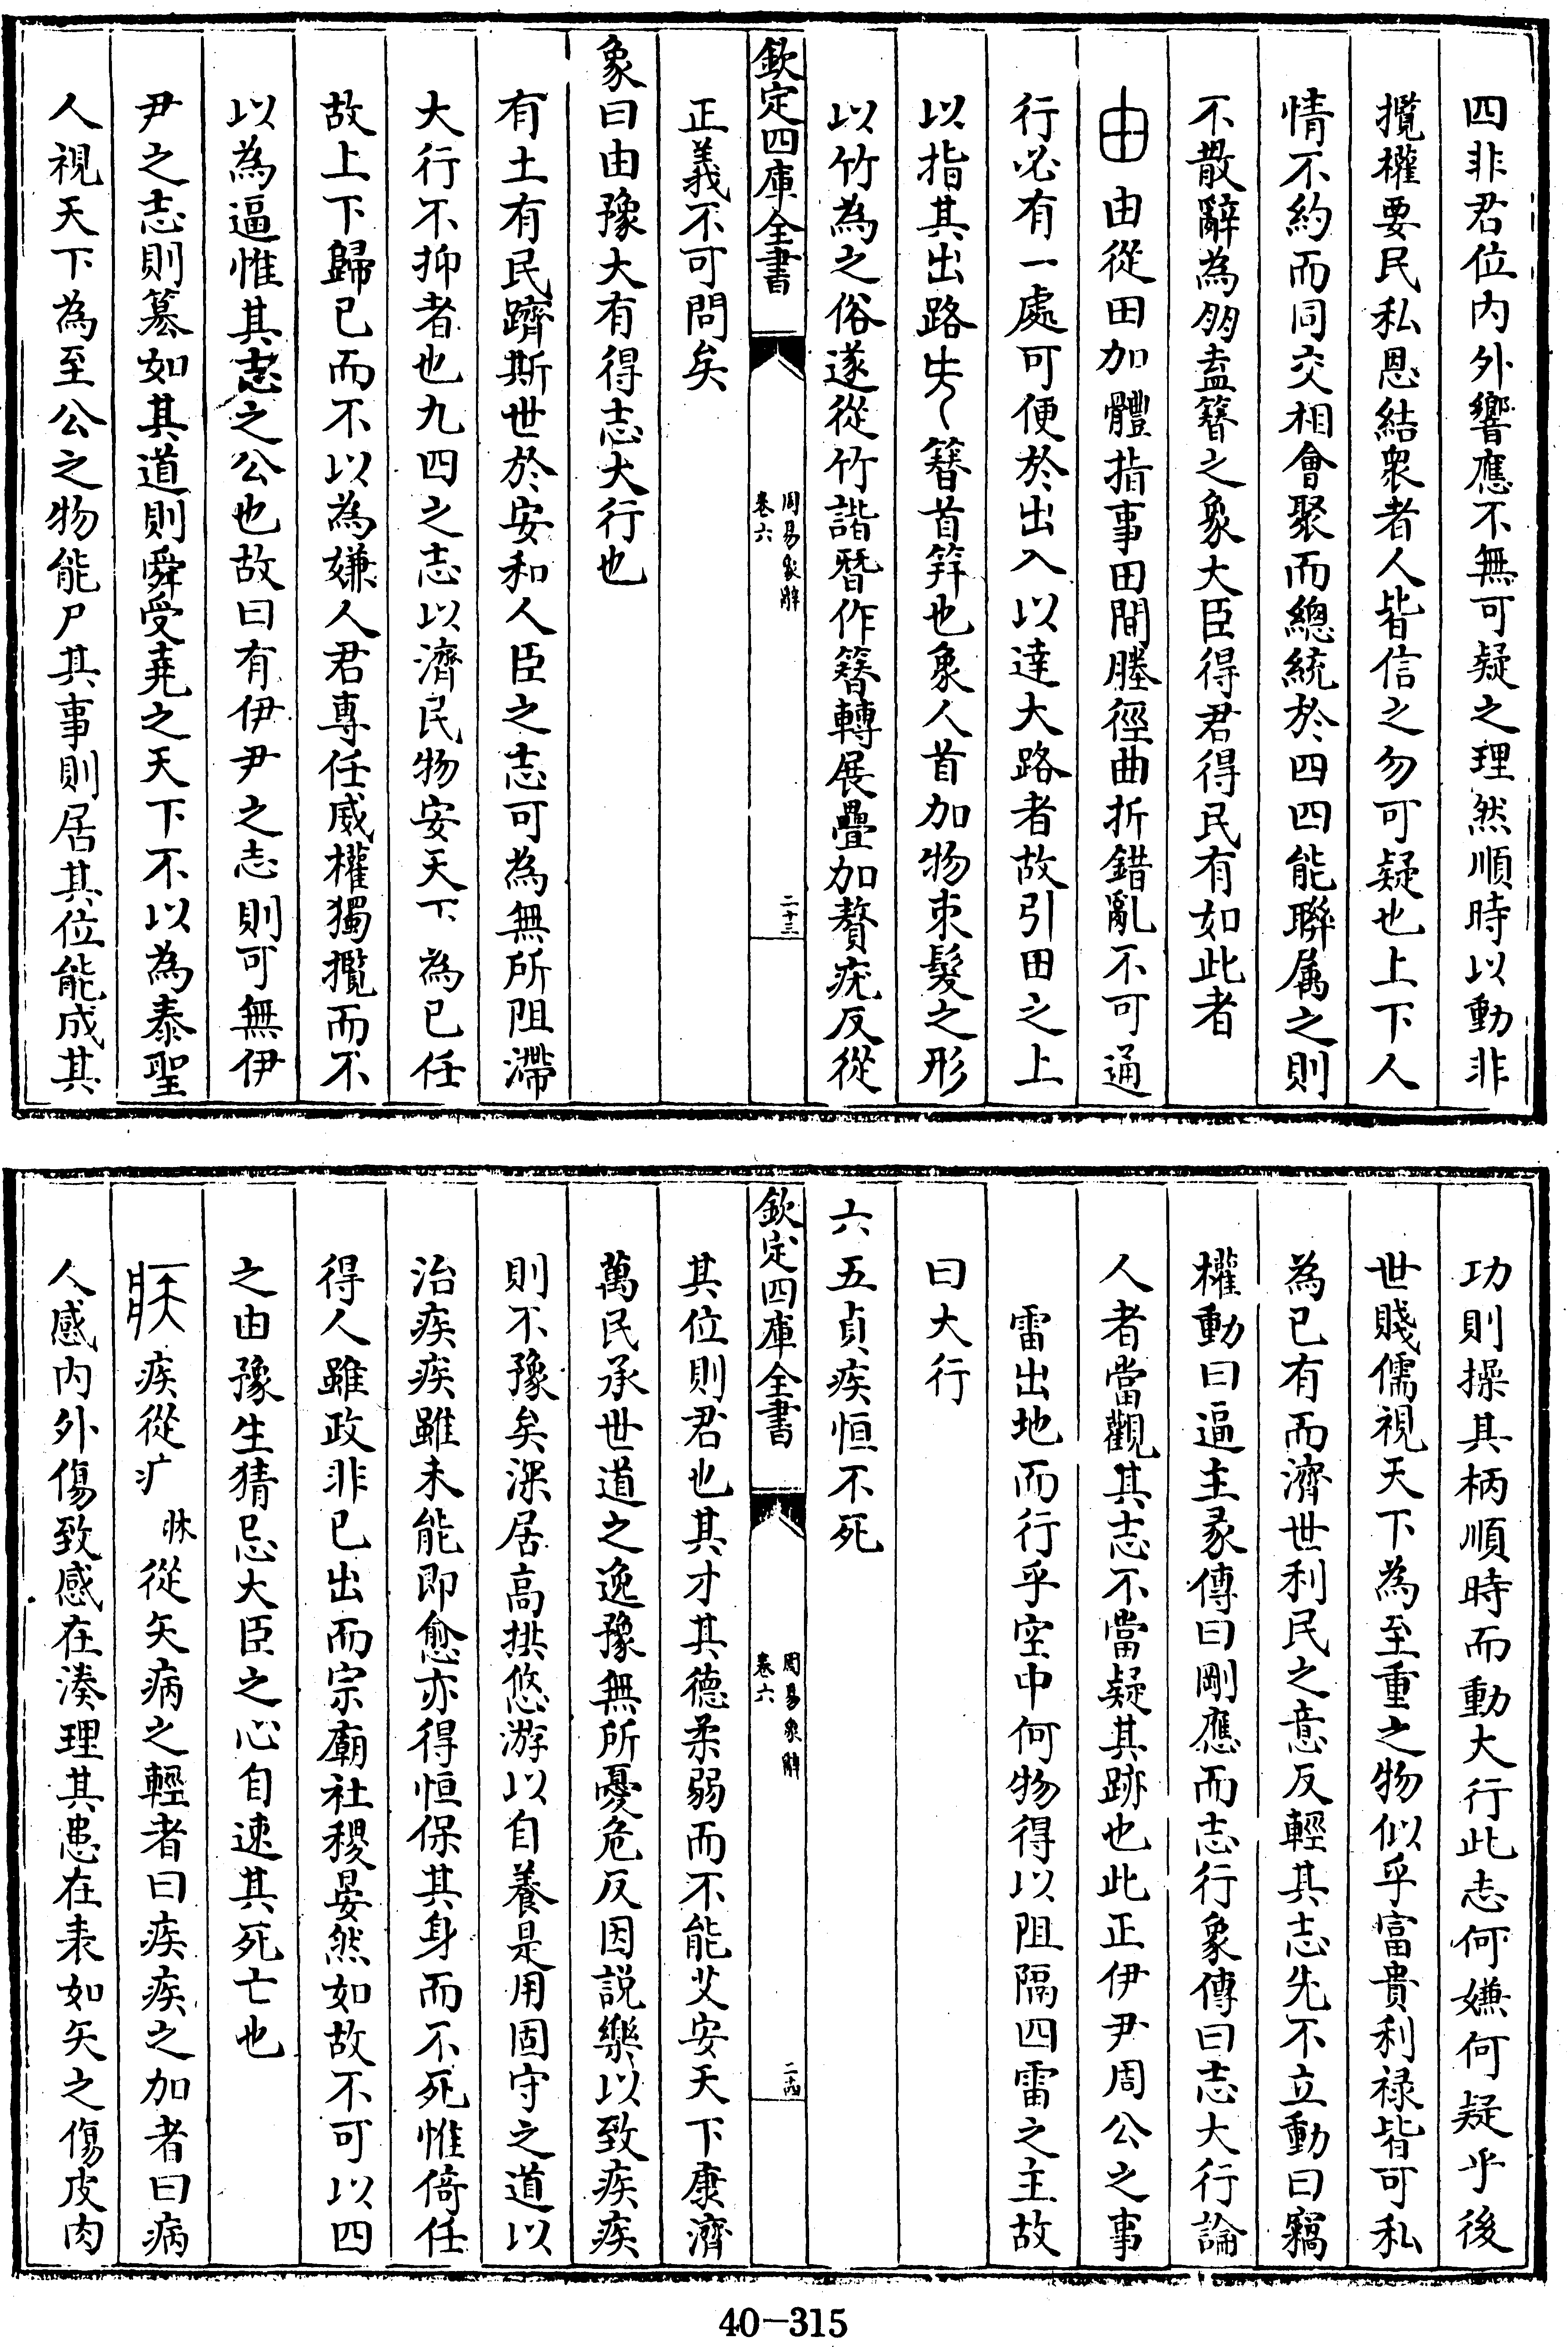 四非君位内外響應不無可疑之理然順時以動非
攬權要民私恩結衆者人皆信之勿可疑也上下人
情不約而同交相會聚而總統於四四能聯属之則
不散辭為朋盍簪之象大臣得君得民有如此者
由從田加體指事田間塍徑曲折錯亂不可通
行必有一處可便於出入以達大路者故引田之上
以指其出路簪首筓也象人首加物朿髮之形
以竹為之俗遂從竹諧朁作簪轉展疊加贅疣反從
欽定四庫全書
周易象辭
卷六
二十三
正義不可問矣
象曰由豫大有得志大行也
有土有民躋斯世於安和人臣之志可為無所阻滯
大行不抑者也九四之志以濟民物安天下為已任
故上下歸已而不以為嫌人君專任威權獨攬而不
以為逼惟其志之公也故曰有伊尹之志則可無伊
尹之志則簒如其道則舜受堯之天下不以為泰聖
人視天下為至公之物能尸其事則居其位能成其
功則操其柄順時而動大行此志何嫌何疑乎後
世賤儒視天下為至重之物似乎富貴利祿皆可私
為已有而濟世利民之意反輕其志先不立動曰竊
權動曰逼主彖傳曰剛應而志行象傳曰志大行論
人者當觀其志不當疑其跡也此正伊尹周公之事
雷出地而行乎空中何物得以阻隔四雷之主故
曰大行
六五貞疾恒不死
欽定四庫全書
周易象辭
卷六
二十四
其位則君也其才其德柔弱而不能乂安天下康濟
萬民承世道之逸豫無所憂危反因説樂以致疾疾
則不豫矣深居高拱悠游以自養是用固守之道以
治疾疾雖未能即愈亦得恒保其身而不死惟倚任
得人雖政非已出而宗廟社稷晏然如故不可以四
之由豫生猜忌大臣之心自速其死亡也
疾從疒從矢病之輕者曰疾疾之加者曰病
人感内外傷致感在湊理其患在表如矢之傷皮肉
40-315